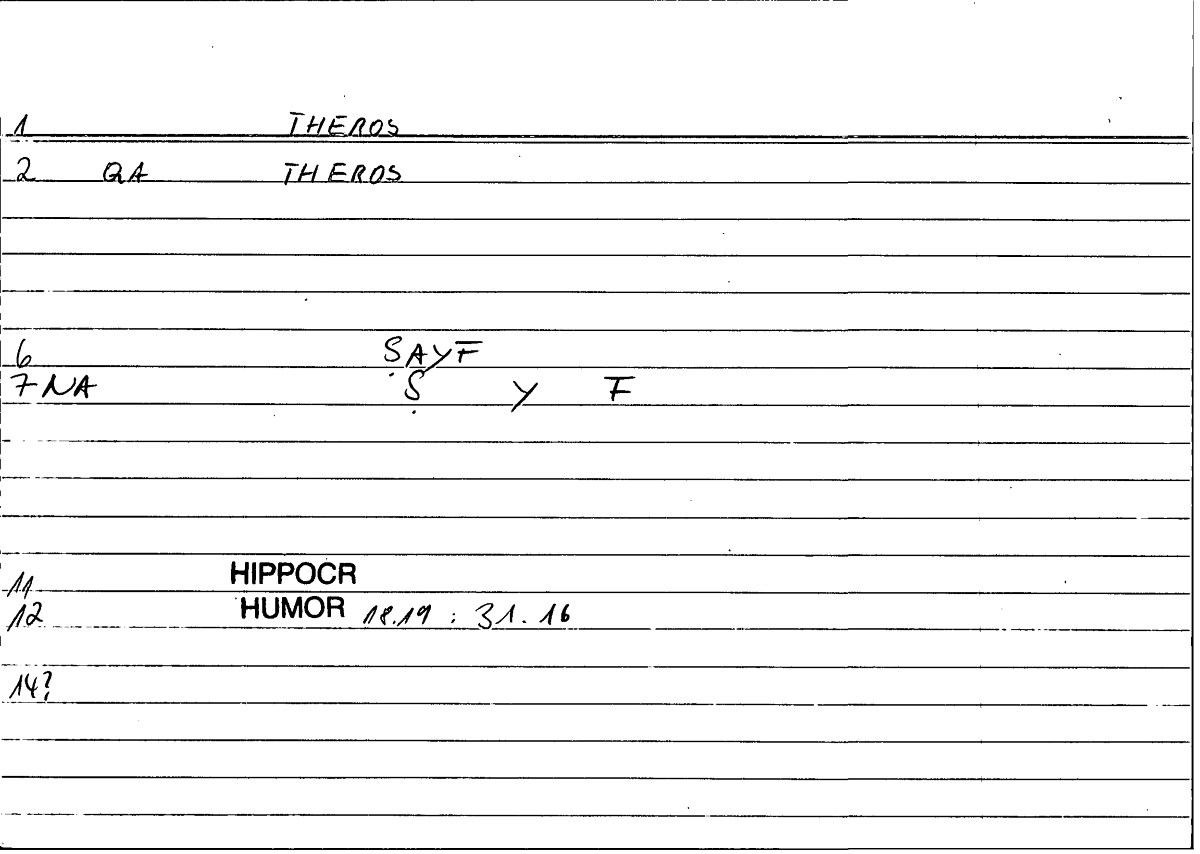 1 THEROS
2 QA THEROS
6 ṢAYF
7 NA Ṣ Y F
11 HIPPOCR
12 HUMOR 18.19 : 31.16
14?